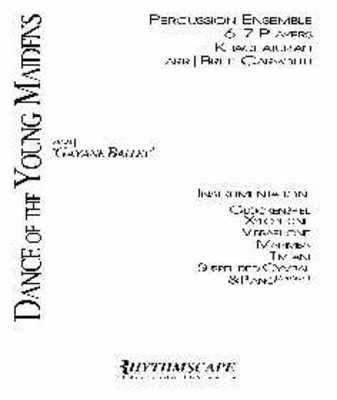 DANCE OF THE YOUNG MAIDENS
FROM
"GAYANE BALLET"
PERCUSSION ENSEMBLE
6-7 PLAYERS
KHACHATURIAN
ARR | BRETT
INSTRUMENTATION
GLOCKENSPIEL
XYLOPHONE
VIBRAPHONE
MARIMBA
TIMPANI
SUSPENDED CYMBAL
& PIANO
RHYTHMSCAPE